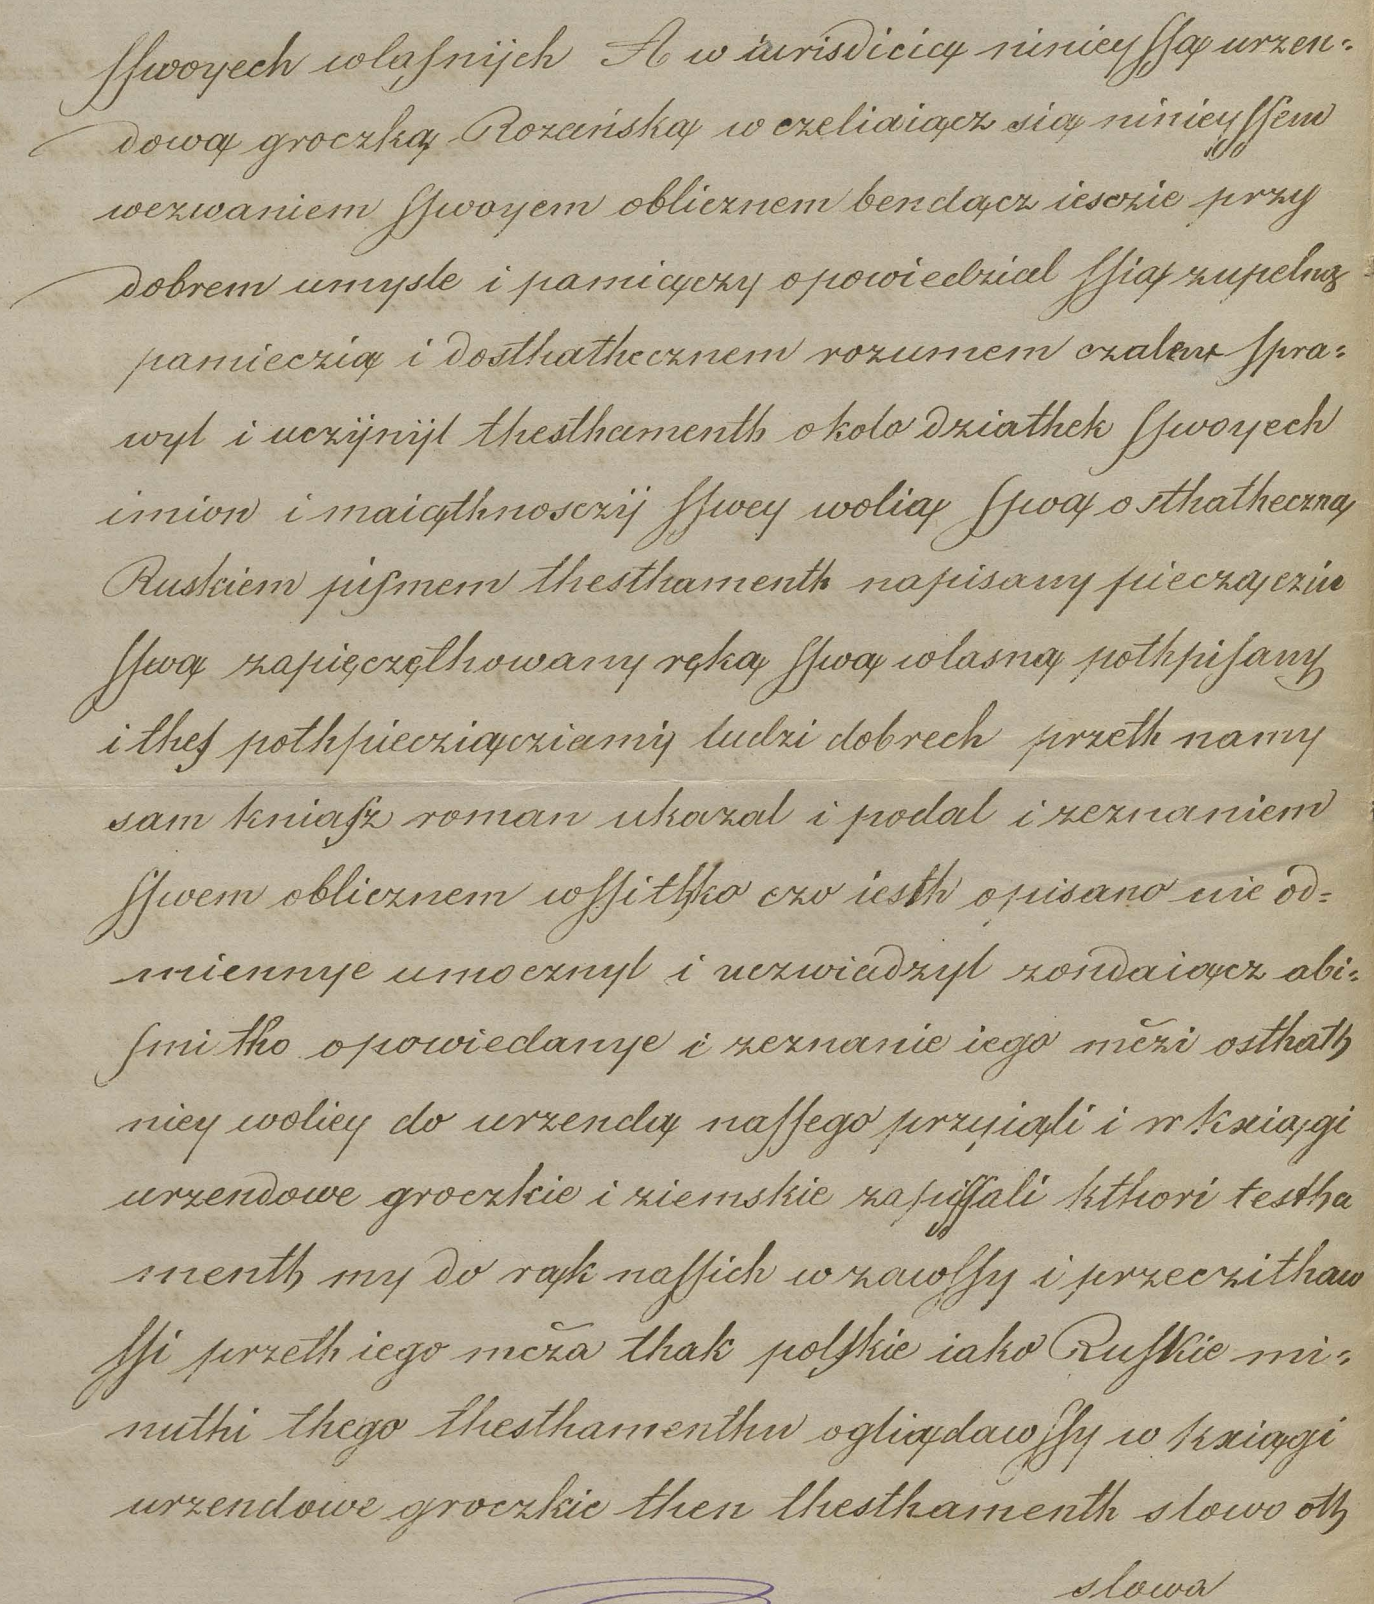 sswoyech wlasnijch A w iurisdicicą niniey ssą urzen=
dową groczką Rozańską w czeliaiącz sią niniey ssem
wezwaniem sswoyem oblicznem bendącz iesczie przy
dobrem umysle i pamiączy opowiedzial ssią zupelną
pamieczią i dosthathecznem rozumem czalem spra=
wyl i uczijnijl thesthamenth okolo dziathek sswoyech
imion i maiąthnosczij sswey wolią sswą osthatheczną
Ruskiem pismem thesthamenth napisany pieczączią
sswą zapięczęthowany ręką sswą wlasną pothpisany
i thes pothpiecziącziamij ludzi dobrech przeth namy
sam kniasz roman ukazal i podal i zeznaniem
sswem oblicznem wssithko czo iesth opisano nie od=
miennye umocznyl i uczwiadzyl zondaiącz abi=
smi tho opowiedanye i zeznanie iego mczi osthath
niey woliey do urzendą nassego przyiąli i w ksiągi
urzendowe groczkie i ziemskie zapissali kthori testha
menth my do rąk nassich w zawssy i przeczithaw
ssi przeth iego mcza thak polskie iako Ruskie mi=
nuthi thego thesthamenthu ogliądawssy w ksiągi
urzendowe groczkie then thesthamenth slowo oth
slowa